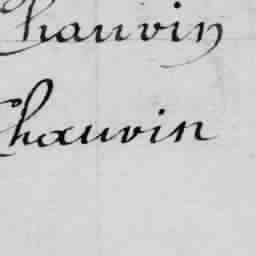 Chauvin
Chauvin